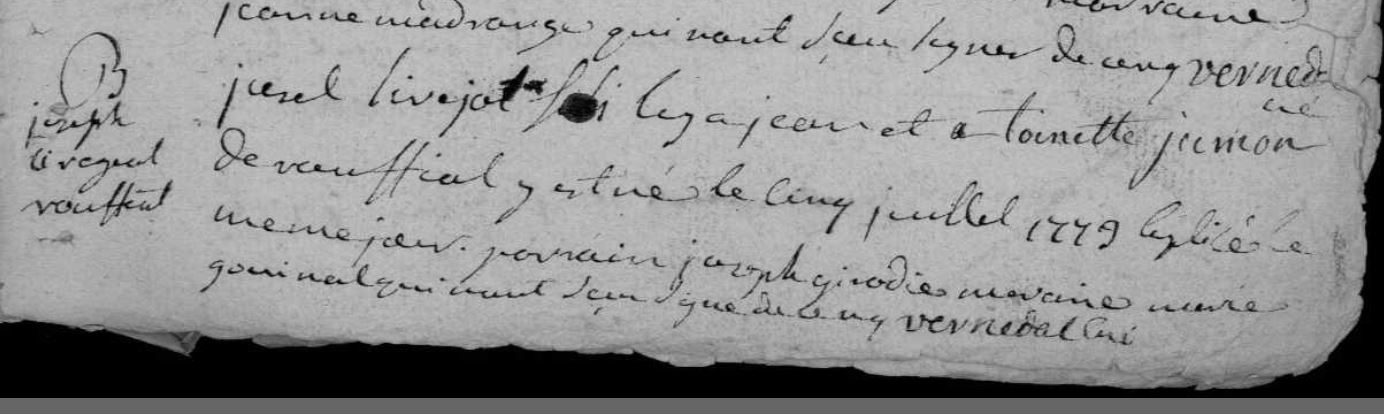 marraine
jeanne madrange qui nont sceu signer de cenq verned
curé
B
joseph
livegeal
rouffial
josel livejat fils leg a jean et a toinette jumon
de rouffial y est né le cinq juillet 1779 baptisé le
meme jour. parrain joseph girodie maraine marie
gouinal qui nont sceu signé de cenq vernedal curé